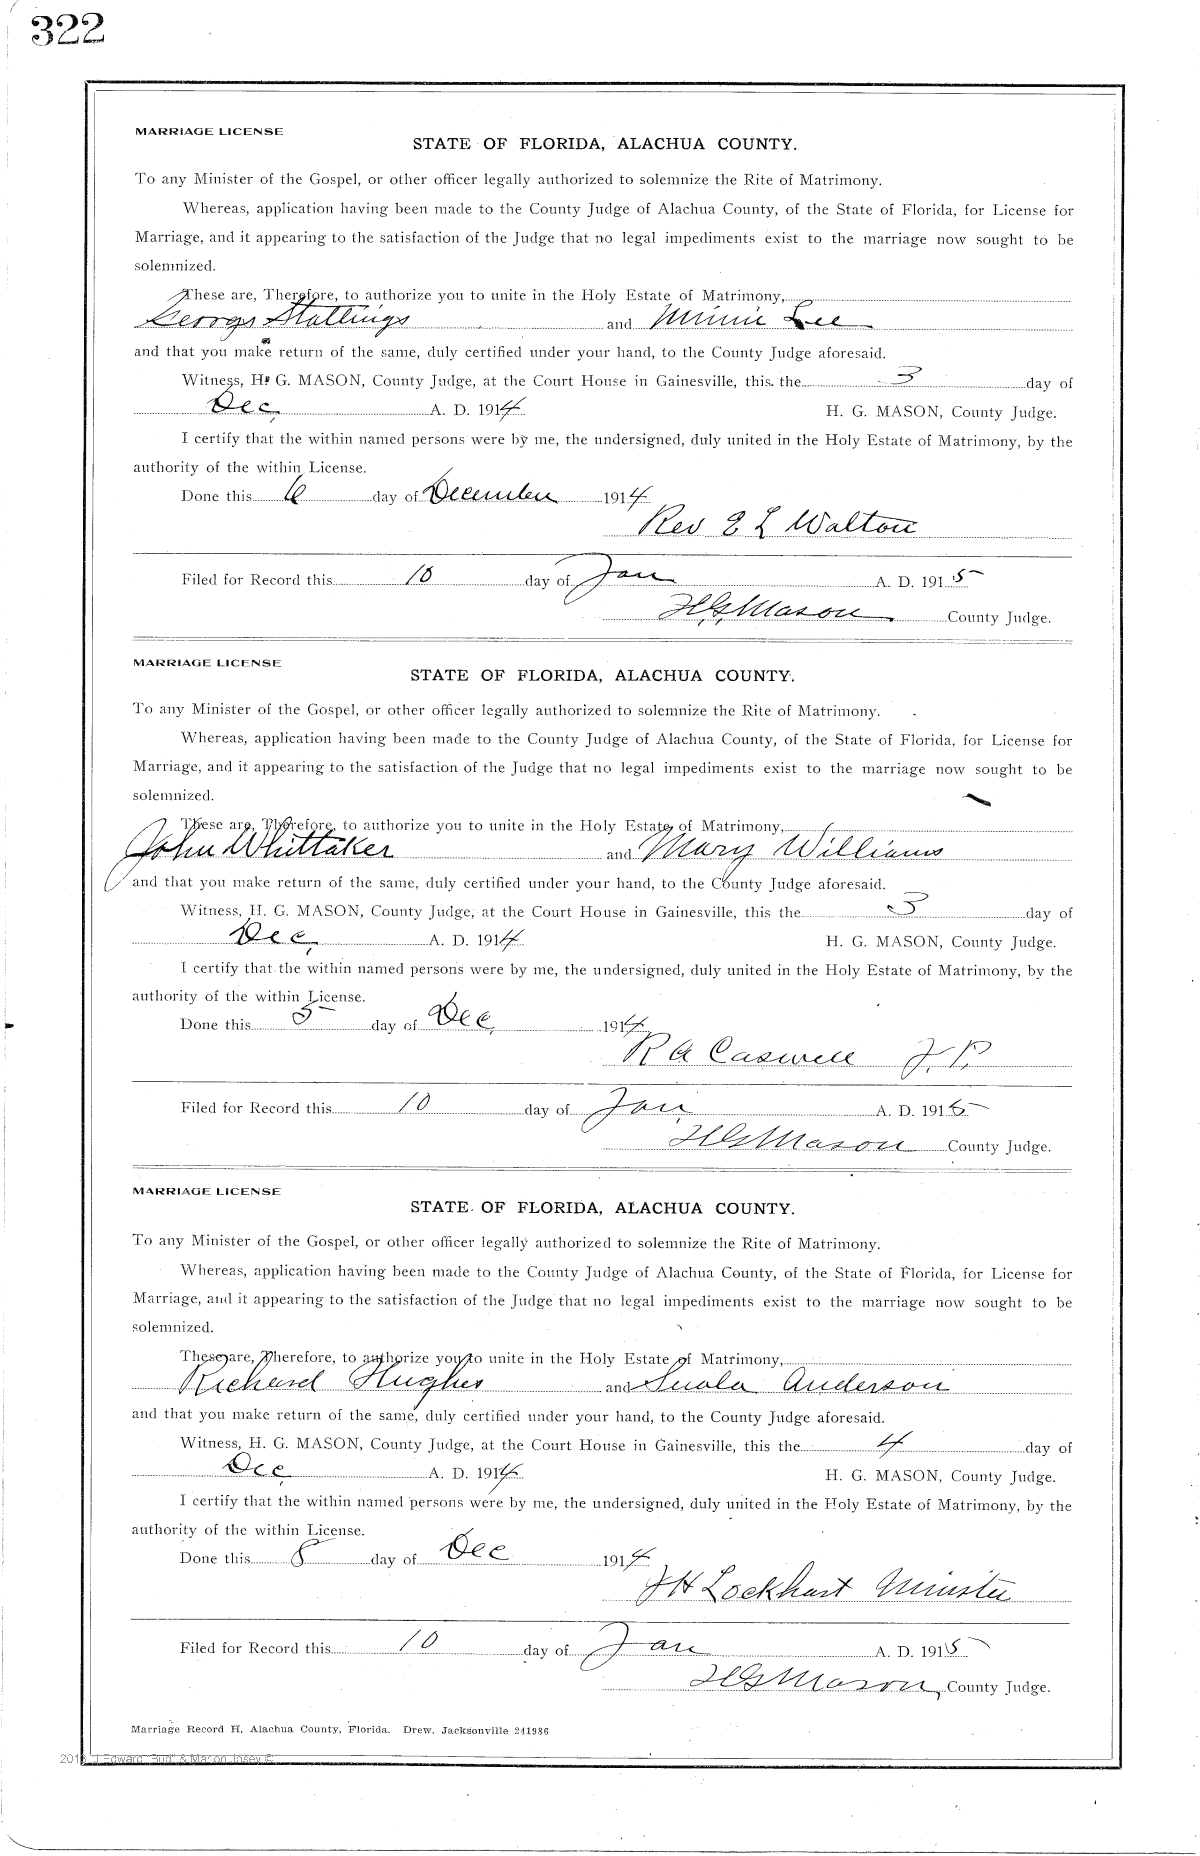 322
MARRIAGE LICENSE
STATE OF FLORIDA, ALACHUA COUNTY.
To any Minister of the Gospel, or other officer legally authorized to solemnize the Rite of Matrimony.
Whereas, application having been made to the County Judge of Alachua County, of the State of Florida, for License for
Marriage, and it appearing to the satisfaction of the Judge that no legal impediments exist to the marriage now sought to be
solemnized.
These are, Therefore, to authorize you to unite in the Holy Estate of Matrimony,
George Stallings and Minnie Lee
and that you make return of the same, duly certified under your hand, to the County Judge aforesaid.
Witness, H. G. MASON, County Judge, at the Court House in Gainesville, this the 3 day of
Dec, A. D. 1914 H. G. MASON, County Judge.
I certify that the within named persons were by me, the undersigned, duly united in the Holy Estate of Matrimony, by the
authority of the within License.
Done this 6 day of December 1914
Rev E L Walton
Filed for Record this 10 day of Jan A. D. 1915
H.G. Mason County Judge.
MARRIAGE LICENSE
STATE OF FLORIDA, ALACHUA COUNTY.
To any Minister of the Gospel, or other officer legally authorized to solemnize the Rite of Matrimony.
Whereas, application having been made to the County Judge of Alachua County, of the State of Florida, for License for
Marriage, and it appearing to the satisfaction of the Judge that no legal impediments exist to the marriage now sought to be
solemnized.
These are, Therefore, to authorize you to unite in the Holy Estate of Matrimony,
John Whittaker and Mary Williams
and that you make return of the same, duly certified under your hand, to the County Judge aforesaid.
Witness, H. G. MASON, County Judge, at the Court House in Gainesville, this the 3 day of
Dec, A. D. 1914 H. G. MASON, County Judge.
I certify that the within named persons were by me, the undersigned, duly united in the Holy Estate of Matrimony, by the
authority of the within License.
Done this 5 day of Dec, 1914
R A Caswell J.P.
Filed for Record this 10 day of Jan, A. D. 1915
H G Mason County Judge.
MARRIAGE LICENSE
STATE OF FLORIDA, ALACHUA COUNTY.
To any Minister of the Gospel, or other officer legally authorized to solemnize the Rite of Matrimony.
Whereas, application having been made to the County Judge of Alachua County, of the State of Florida, for License for
Marriage, and it appearing to the satisfaction of the Judge that no legal impediments exist to the marriage now sought to be
solemnized.
These are, Therefore, to authorize you to unite in the Holy Estate of Matrimony,
Richard Hughes and Anderson
and that you make return of the same, duly certified under your hand, to the County Judge aforesaid.
Witness, H. G. MASON, County Judge, at the Court House in Gainesville, this the 4 day of
Dec, A. D. 1914 H. G. MASON, County Judge.
I certify that the within named persons were by me, the undersigned, duly united in the Holy Estate of Matrimony, by the
authority of the within License.
Done this 8 day of Dec 1914
J H Lockhart Minister
Filed for Record this 10 day of Jan A. D. 1915
H G Mason, County Judge.
Marriage Record H, Alachua County, Florida. Drew, Jacksonville 241986
J Edward "Bud" & Marion